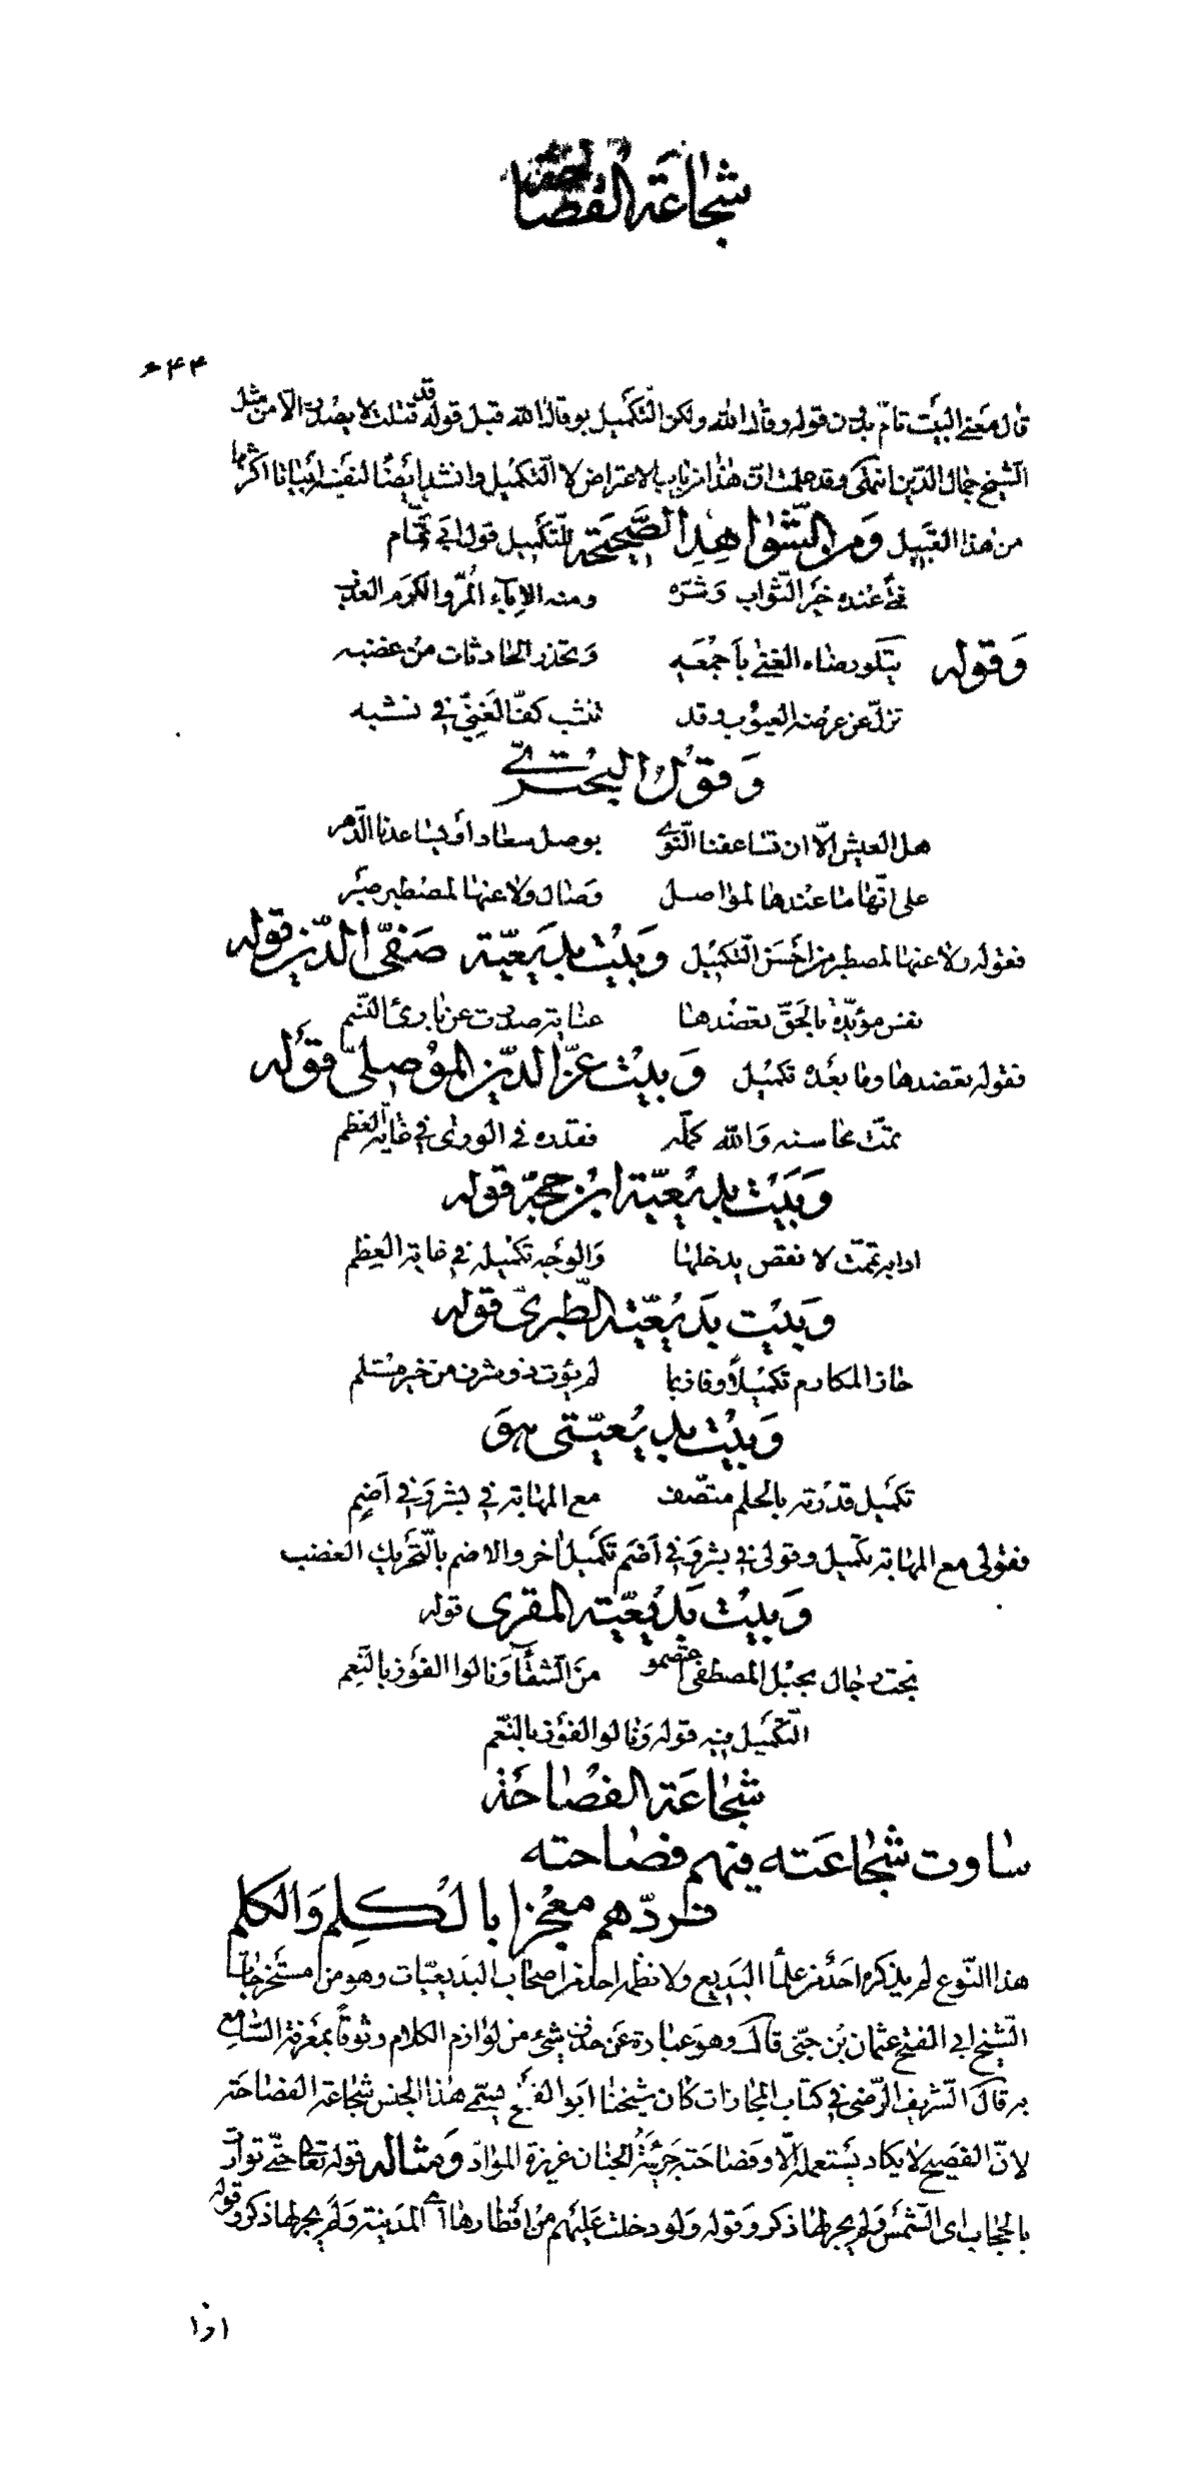 شجاعة الفصاحة
۶۴۴
قال معنى البيت تام بدون قوله وقال الله ولكن التكميل بو قال الله قبل قوله قد قتلت لا يصدر الا من مثل
الشيخ جمال الدين انتهى وقد علمت ان هذا من باب الاعتراض لا التكميل وانشد ايضا لنفسه ابياتا اكثرها
من هذا القبيل ومن الشواهد الصحيحة للتكميل قول ابي تمام
فتى عنده خير الثواب وشره ومنه الإباء المر والكرم العذب
وقوله يتلو رضاه الغنى بأجمعه وتحذر الحادثات من غضبه
تزل عن عرضه العيوب وقد تنشب كف الغني في نشبه
وقول البحتري
هل العيش الا ان تساعفنا النوى بوصل سعاد أو يساعدنا الدهر
على انها ما عندها لمواصل وصال ولا عنها لمصطبر صبر
فقوله ولا عنها لمصطبر من أحسن التكميل وبيت بديعية صفي الدين قوله
نفس مؤيدة بالحق تعضدها عناية صدرت عن بارئ النسم
فقوله تعضدها وما بعده تكميل وبيت عز الدين الموصلي قوله
تمت محاسنه والله كمله فقدره في الورى في غاية العظم
وبيت بديعية ابن حجة قوله
ادابه تمت لا نقص يدخلها والوجه تكميله في غاية العظم
وبيت بديعية الطبري قوله
حاز المكارم تكميلا وفاز بما لم يؤت ذو شرف من خير مستلم
وبيت بديعيتي هو
تكميل قدرته بالحلم متصف مع المهابة في بشر وفي أضم
فقولي مع المهابة تكميل وقولي في بشر وفي أضم تكميل اخر والاضم بالتحريك الغضب
وبيت بديعية المقرى قوله
نجت رجال بحبل المصطفى اعتصموا من الشقاء ونالوا الفوز بالنعم
التكميل فيه قوله ونالوا الفوز بالنعم
شجاعة الفصاحة
ساوت شجاعته فيهم فصاحته
تردهم معجزا بالكلم والكلم
هذا النوع لم يذكره احد من علماء البديع ولا نظمه احد من اصحاب البديعيات وهو من مستخرجات
الشيخ ابي الفتح عثمان بن جني قال وهو عبارة عن حذف شيء من لوازم الكلام وثوقا بمعرفة السامع
به قال الشريف الرضي في كتاب المجازات كان شيخنا ابو الفتح يسمى هذا الجنس شجاعة الفصاحة
لان الفصيح لا يكاد يستعمله إلا وفصاحته جريئة الجنان غزيرة المواد ومثاله قوله تعالى حتى توارت
بالحجاب اى الشمس ولم يجر لها ذكر وقوله ولو دخلت عليهم من أقطارها اى المدينة ولم يجر لها ذكر وقوله
اذا